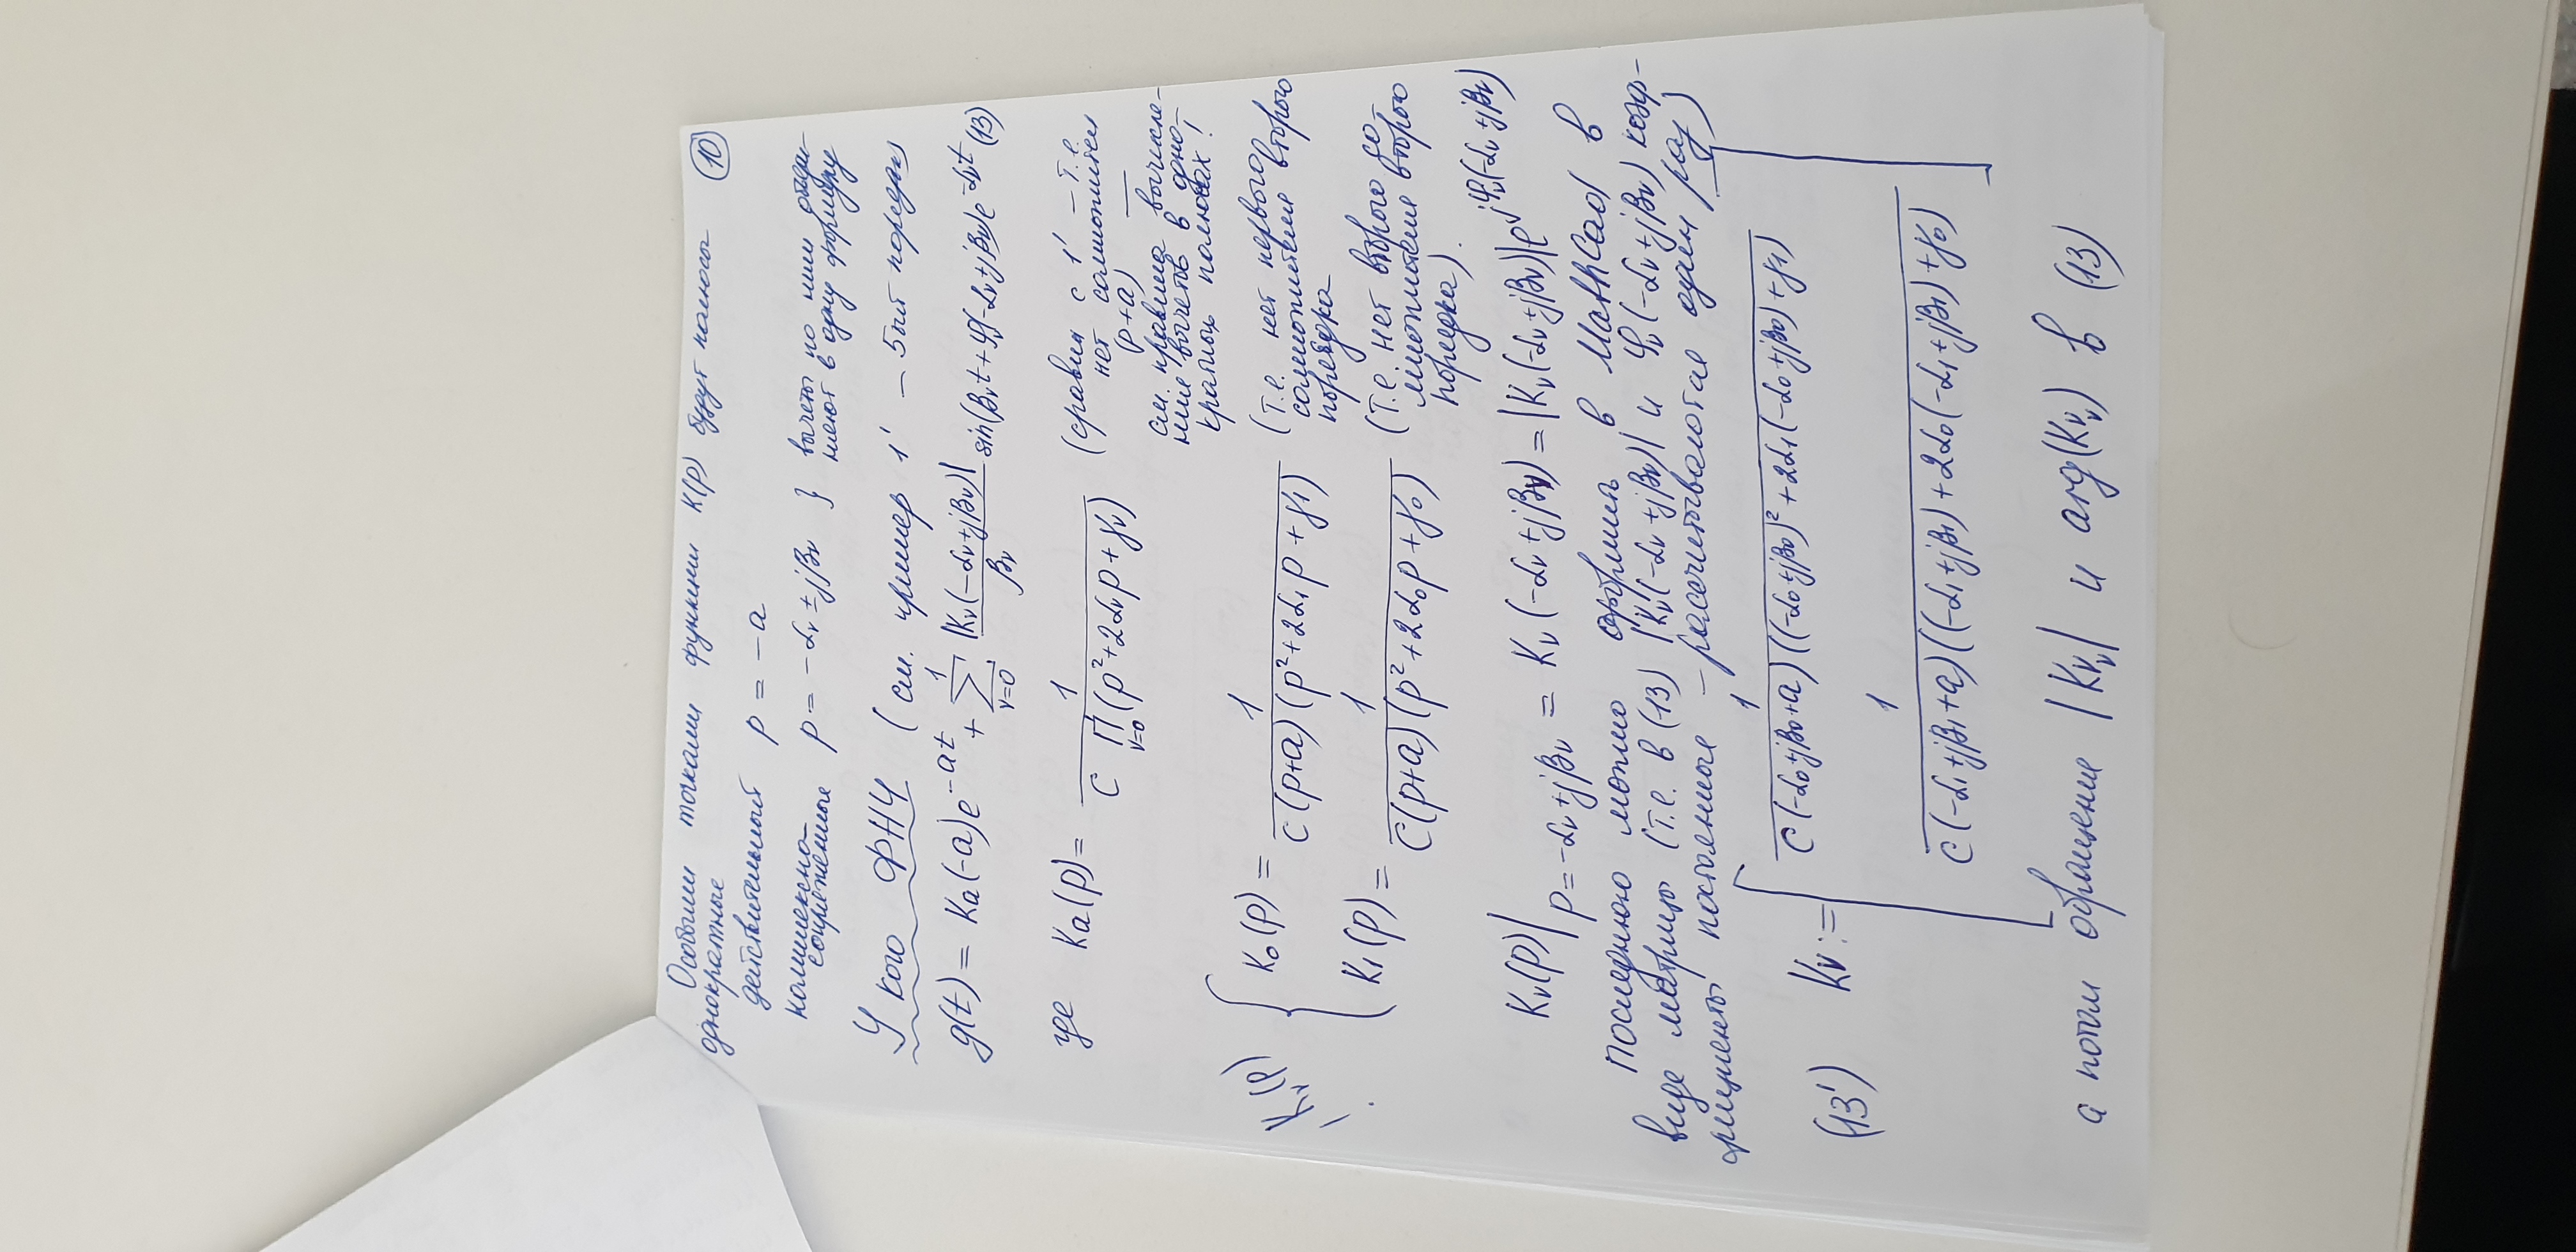 Особыми точками функции K(p) будут полюсы (10)
однократные
действительный p = −a
комплексно-
сопряженные p = −αᵥ ± jβᵥ } вычеты по ним объеди-
няют в одну формулу
У кого ФНЧ (см. пример 1' – 5ый порядок)
g(t) = Ka(−a)e^{−at} + Σ_{ν=0}^{1} |Kᵥ(−αᵥ+jβᵥ)| / βᵥ sin(βᵥt + φᵥ(−αᵥ+jβᵥ))e^{−αᵥt} (13)
где Ka(p) = 1 / (C Π_{ν=0} (p²+2αᵥp+γᵥ)) (сравни с 1' – т.е.
нет сомножителя
(p+a) —
см. правила вычисле-
ния вычетов в одно-
кратных полюсах!
! Kᵥ(p)
{ K₀(p) = 1 / (C(p+a)(p²+2α₁p+γ₁)) (т.е. нет первого
сомножителя второго
порядка
K₁(p) = 1 / (C(p+a)(p²+2α₀p+γ₀)) (т.е. нет второго со-
множителя второго
порядка).
Kᵥ(p)|_{p=−αᵥ+jβᵥ} = Kᵥ(−αᵥ+jβᵥ) = |Kᵥ(−αᵥ+jβᵥ)|e^{jφᵥ(−αᵥ+jβᵥ)}
Последнюю можно оформить в MathCad в
виде матрицы (т.е. в (13) |Kᵥ(−αᵥ+jβᵥ)| и φᵥ(−αᵥ+jβᵥ) коэф-
фициенты постоянные – рассчитываются один раз)
(13') Kν := [ 1 / (C(−α₀+jβ₀+a)((−α₀+jβ₀)²+2α₁(−α₀+jβ₀)+γ₁))
1 / (C(−α₁+jβ₁+a)((−α₁+jβ₁)+2α₀(−α₁+jβ₁)+γ₀)) ]
а потом обращение |Kνᵥ| и arg(Kνᵥ) в (13)